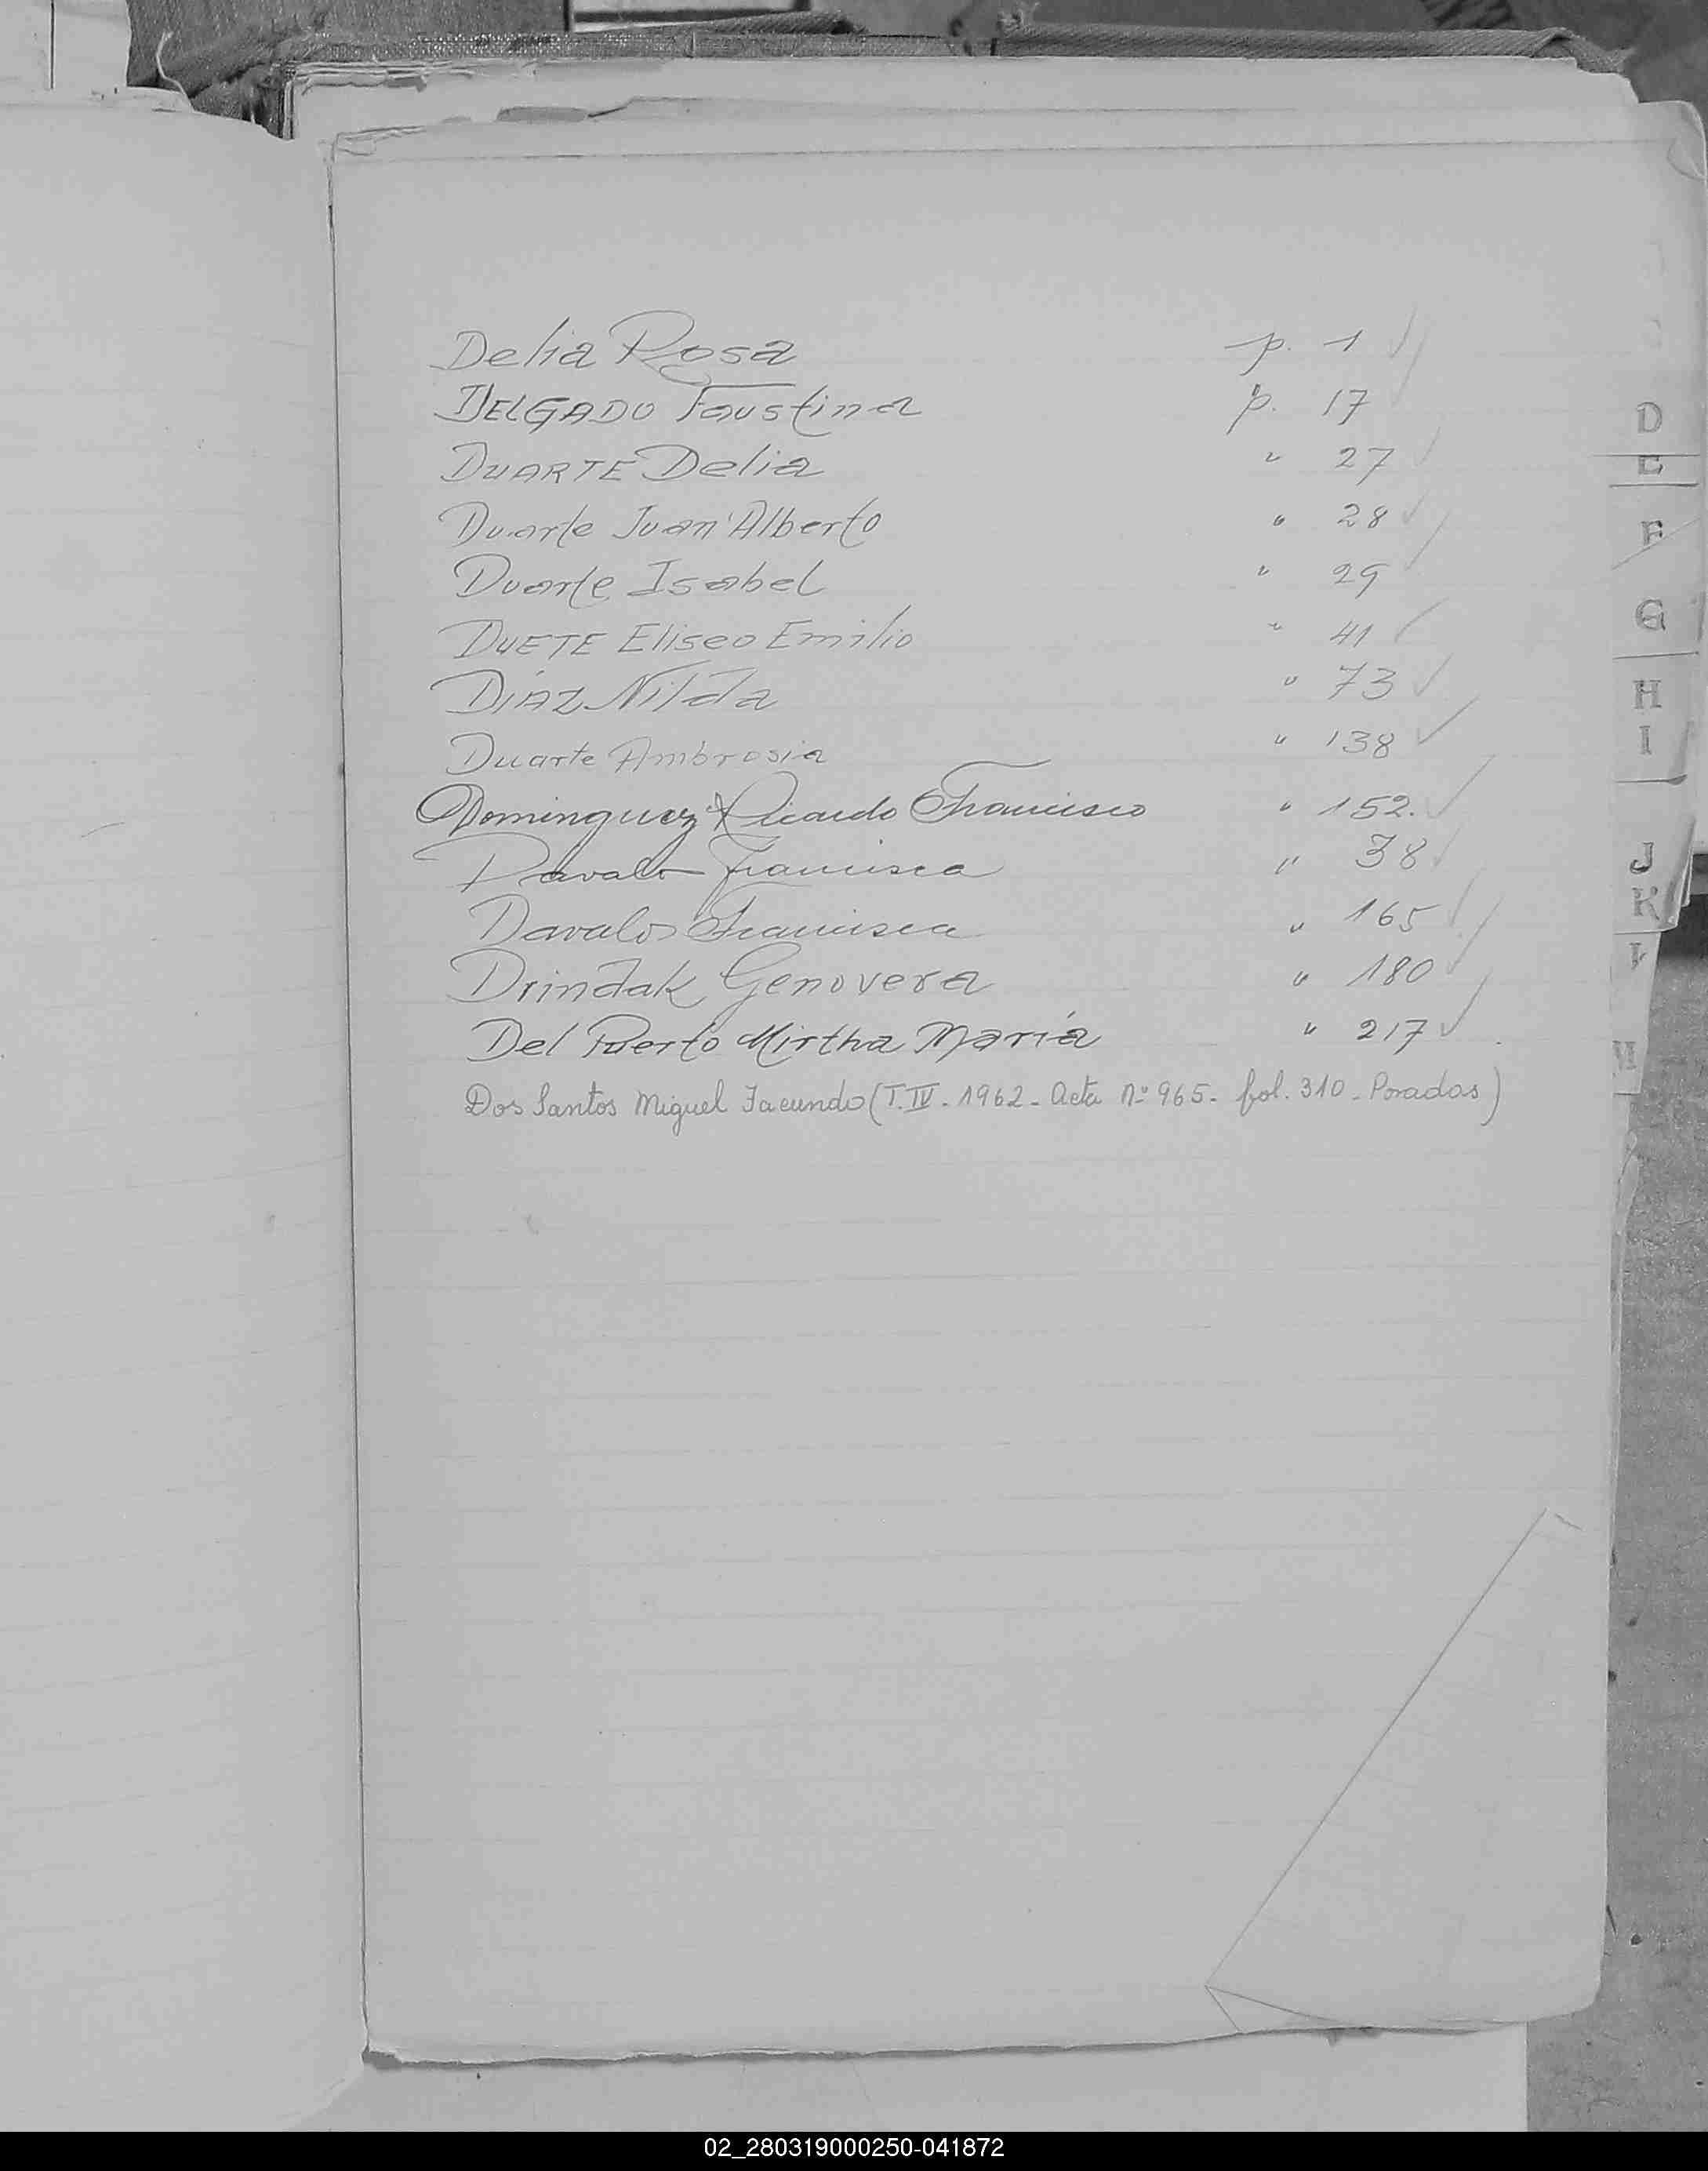 Delia Rosa p. 1
DELGADO Faustina p. 17
DUARTE Delia " 27
Duarte Juan Alberto " 28
Duarte Isabel " 29
DUETE Eliseo Emilio " 41
DÍAZ Nilda " 73
Duarte Ambrosia " 138
Dominguez Ricardo Francisco " 152.
Davalos Francisca " 38
Davalos Francisca " 165
Drindak Genovera " 180
Del Puerto Mirtha María " 217
Dos Santos Miguel Facundo (T. IV - 1962 - Acta Nº 965 - fol. 310 - Posadas)
D
E
F
G
H
I
J
K
L
M
02_280319000250-041872